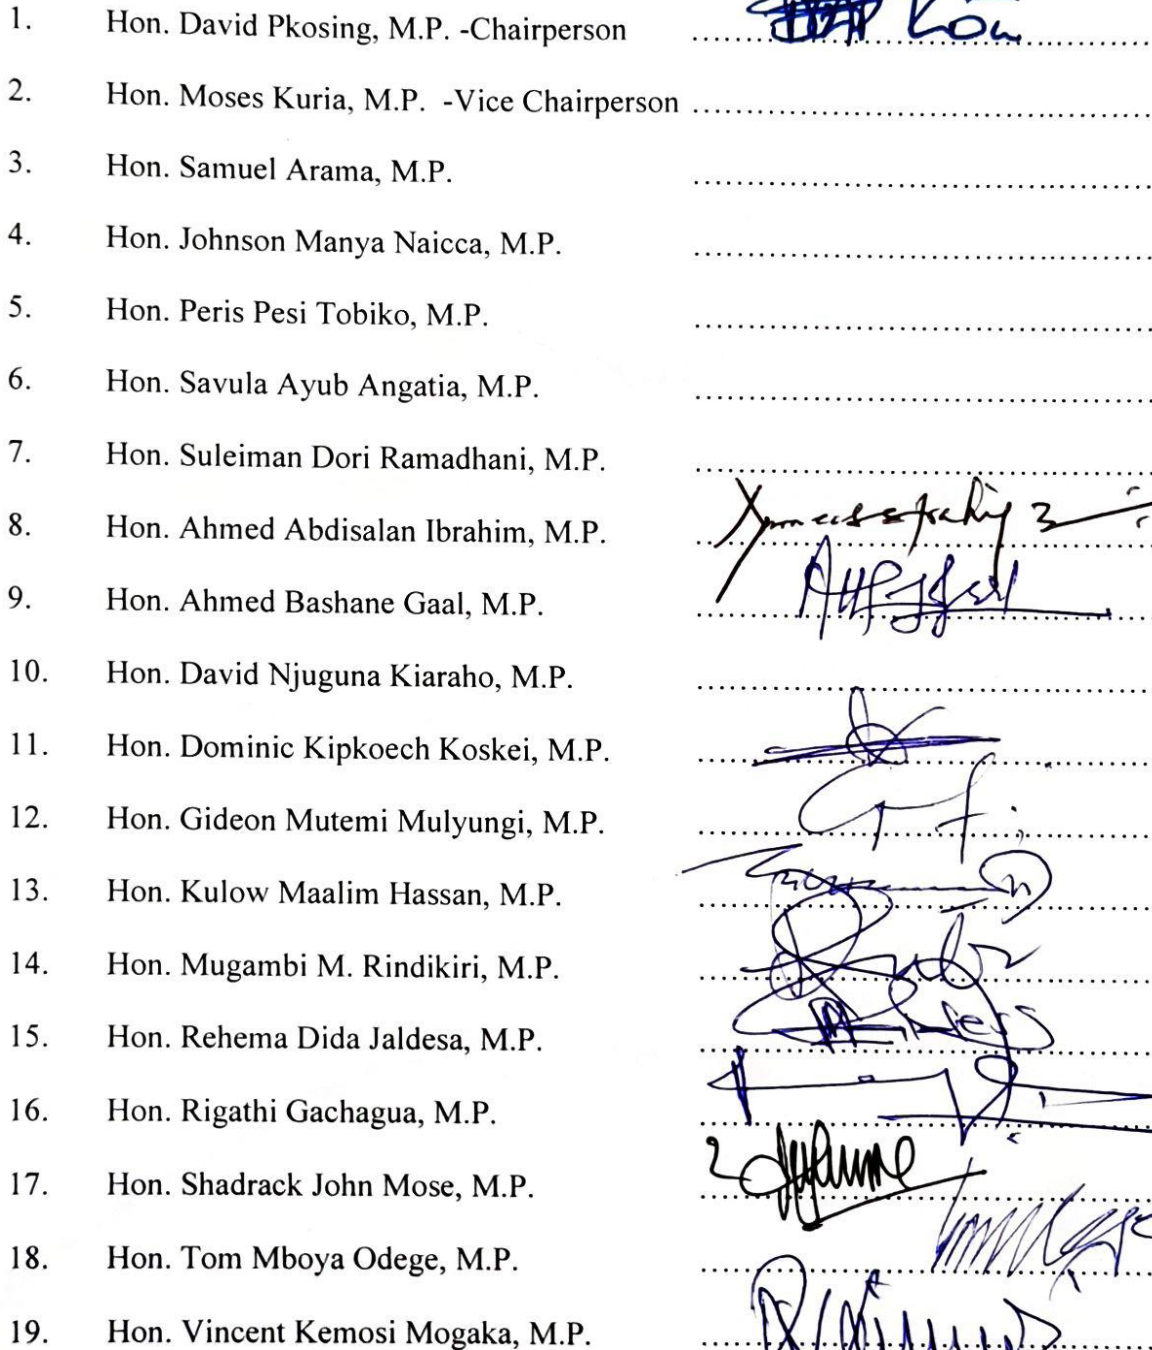 1. Hon. David Pkosing, M.P. -Chairperson
2. Hon. Moses Kuria, M.P. -Vice Chairperson
3. Hon. Samuel Arama, M.P.
4. Hon. Johnson Manya Naicca, M.P.
5. Hon. Peris Pesi Tobiko, M.P.
6. Hon. Savula Ayub Angatia, M.P.
7. Hon. Suleiman Dori Ramadhani, M.P.
8. Hon. Ahmed Abdisalan Ibrahim, M.P.
9. Hon. Ahmed Bashane Gaal, M.P.
10. Hon. David Njuguna Kiaraho, M.P.
11. Hon. Dominic Kipkoech Koskei, M.P.
12. Hon. Gideon Mutemi Mulyungi, M.P.
13. Hon. Kulow Maalim Hassan, M.P.
14. Hon. Mugambi M. Rindikiri, M.P.
15. Hon. Rehema Dida Jaldesa, M.P.
16. Hon. Rigathi Gachagua, M.P.
17. Hon. Shadrack John Mose, M.P.
18. Hon. Tom Mboya Odege, M.P.
19. Hon. Vincent Kemosi Mogaka, M.P.